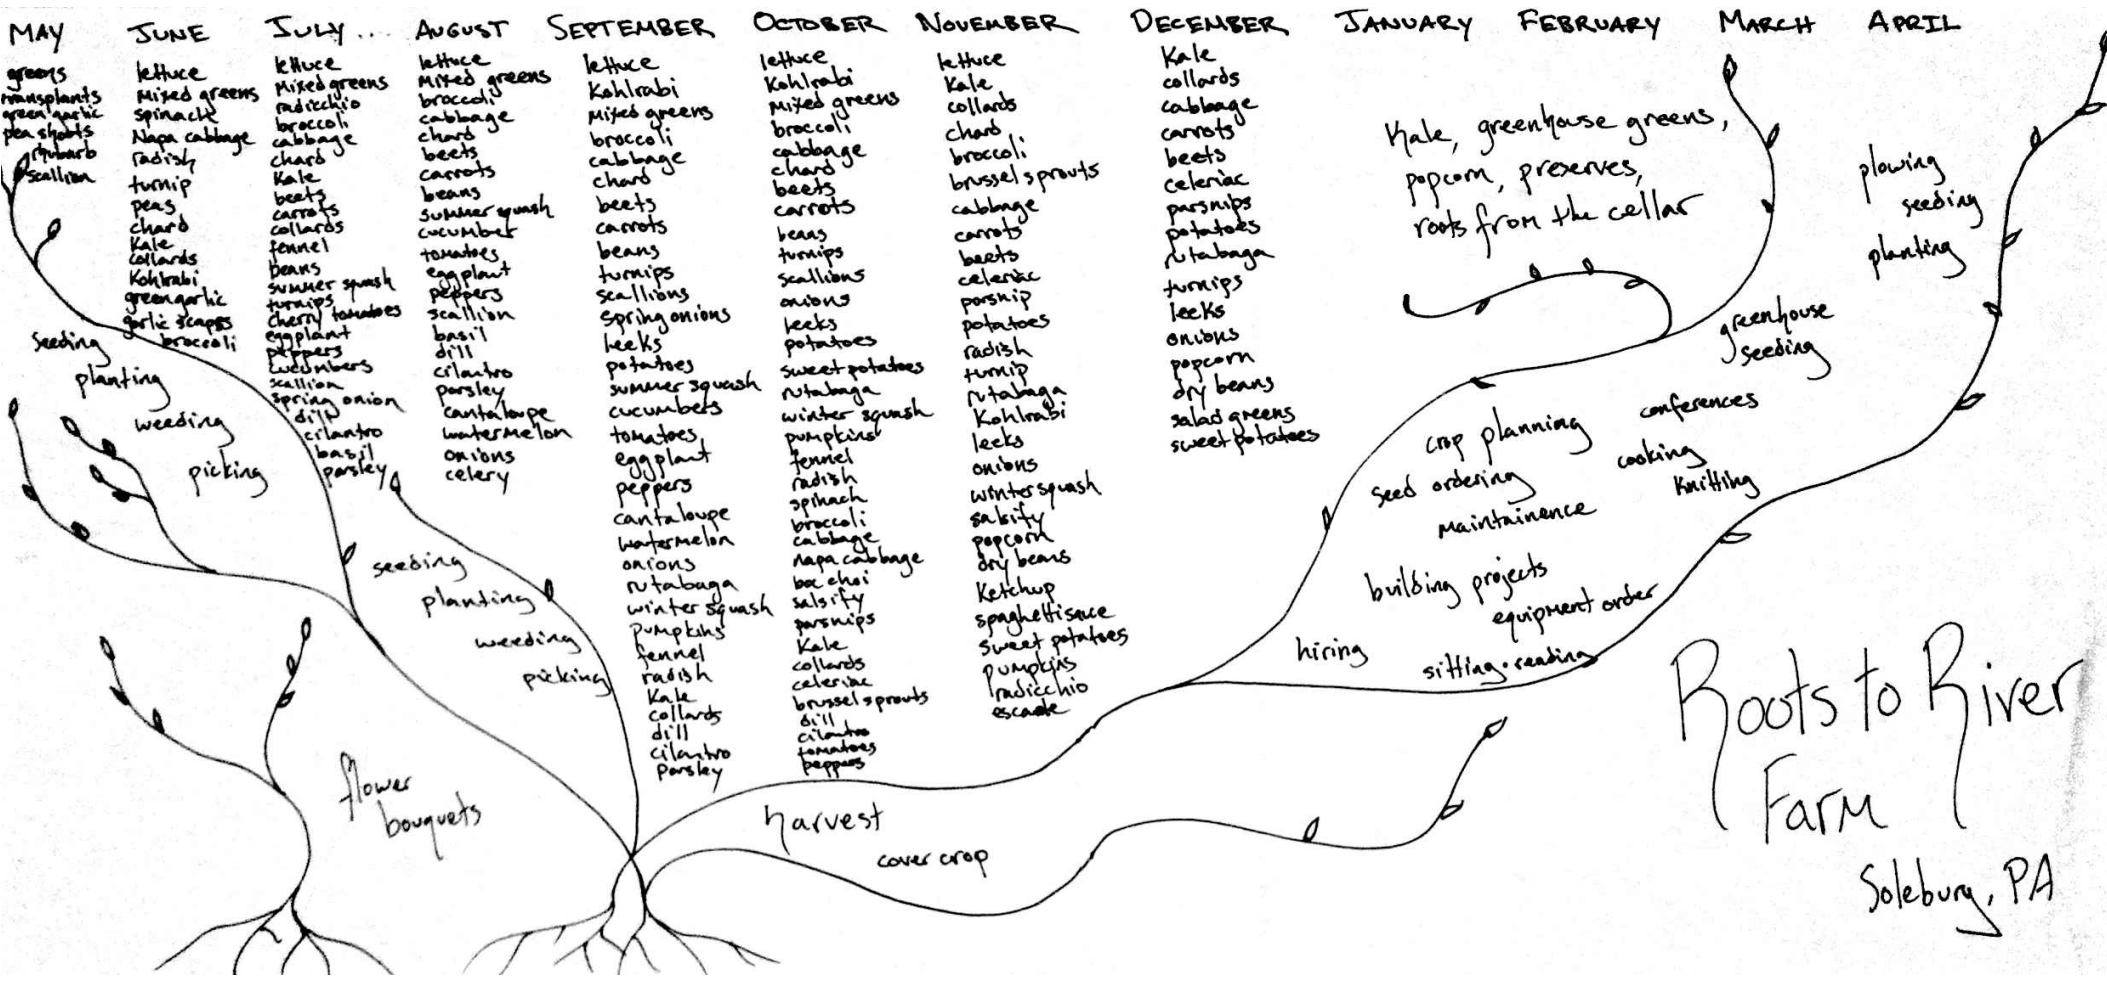 MAY
greens
transplants
green garlic
pea shoots
rhubarb
scallion
JUNE
lettuce
Mixed greens
spinach
Napa cabbage
radish
turnip
peas
chard
Kale
collards
Kohlrabi
green garlic
garlic scapes
broccoli
JULY...
lettuce
Mixed greens
radicchio
broccoli
cabbage
chard
Kale
beets
carrots
collards
fennel
beans
summer squash
turnips
cherry tomatoes
eggplant
peppers
cucumbers
scallion
spring onion
dill
cilantro
basil
parsley
AUGUST
lettuce
Mixed greens
broccoli
cabbage
chard
beets
carrots
beans
summer squash
cucumber
tomatoes
eggplant
peppers
scallion
basil
dill
cilantro
parsley
cantaloupe
watermelon
onions
celery
SEPTEMBER
lettuce
Kohlrabi
Mixed greens
broccoli
cabbage
chard
beets
carrots
beans
turnips
scallions
spring onions
leeks
potatoes
summer squash
cucumbers
tomatoes
eggplant
peppers
cantaloupe
watermelon
onions
rutabaga
winter squash
pumpkins
fennel
radish
Kale
collards
dill
cilantro
parsley
OCTOBER
lettuce
Kohlrabi
Mixed greens
broccoli
cabbage
chard
beets
carrots
beans
turnips
scallions
onions
leeks
potatoes
sweet potatoes
rutabaga
winter squash
pumpkins
fennel
radish
spinach
broccoli
cabbage
napa cabbage
boc choi
salsify
parsnips
Kale
collards
celeriac
brussel sprouts
dill
cilantro
tomatoes
peppers
NOVEMBER
lettuce
Kale
collards
chard
broccoli
brussel sprouts
cabbage
carrots
beets
celeriac
parsnip
potatoes
radish
turnip
rutabaga
Kohlrabi
leeks
onions
winter squash
salsify
popcorn
dry beans
Ketchup
spaghetti sauce
sweet potatoes
pumpkins
radicchio
DECEMBER
Kale
collards
cabbage
carrots
beets
celeriac
parsnips
potatoes
rutabaga
turnips
leeks
onions
popcorn
dry beans
salad greens
sweet potatoes
JANUARY
FEBRUARY
MARCH
APRIL
Kale, greenhouse greens,
popcorn, preserves,
roots from the cellar
plowing
seeding
planting
greenhouse
seeding
seeding
planting
weeding
picking
seeding
planting
weeding
picking
flower
bouquets
harvest
cover crop
crop planning
conferences
seed ordering
cooking
Knitting
maintainence
building projects
equipment order
hiring
sitting • reading
Roots to River
Farm
Soleburg, PA